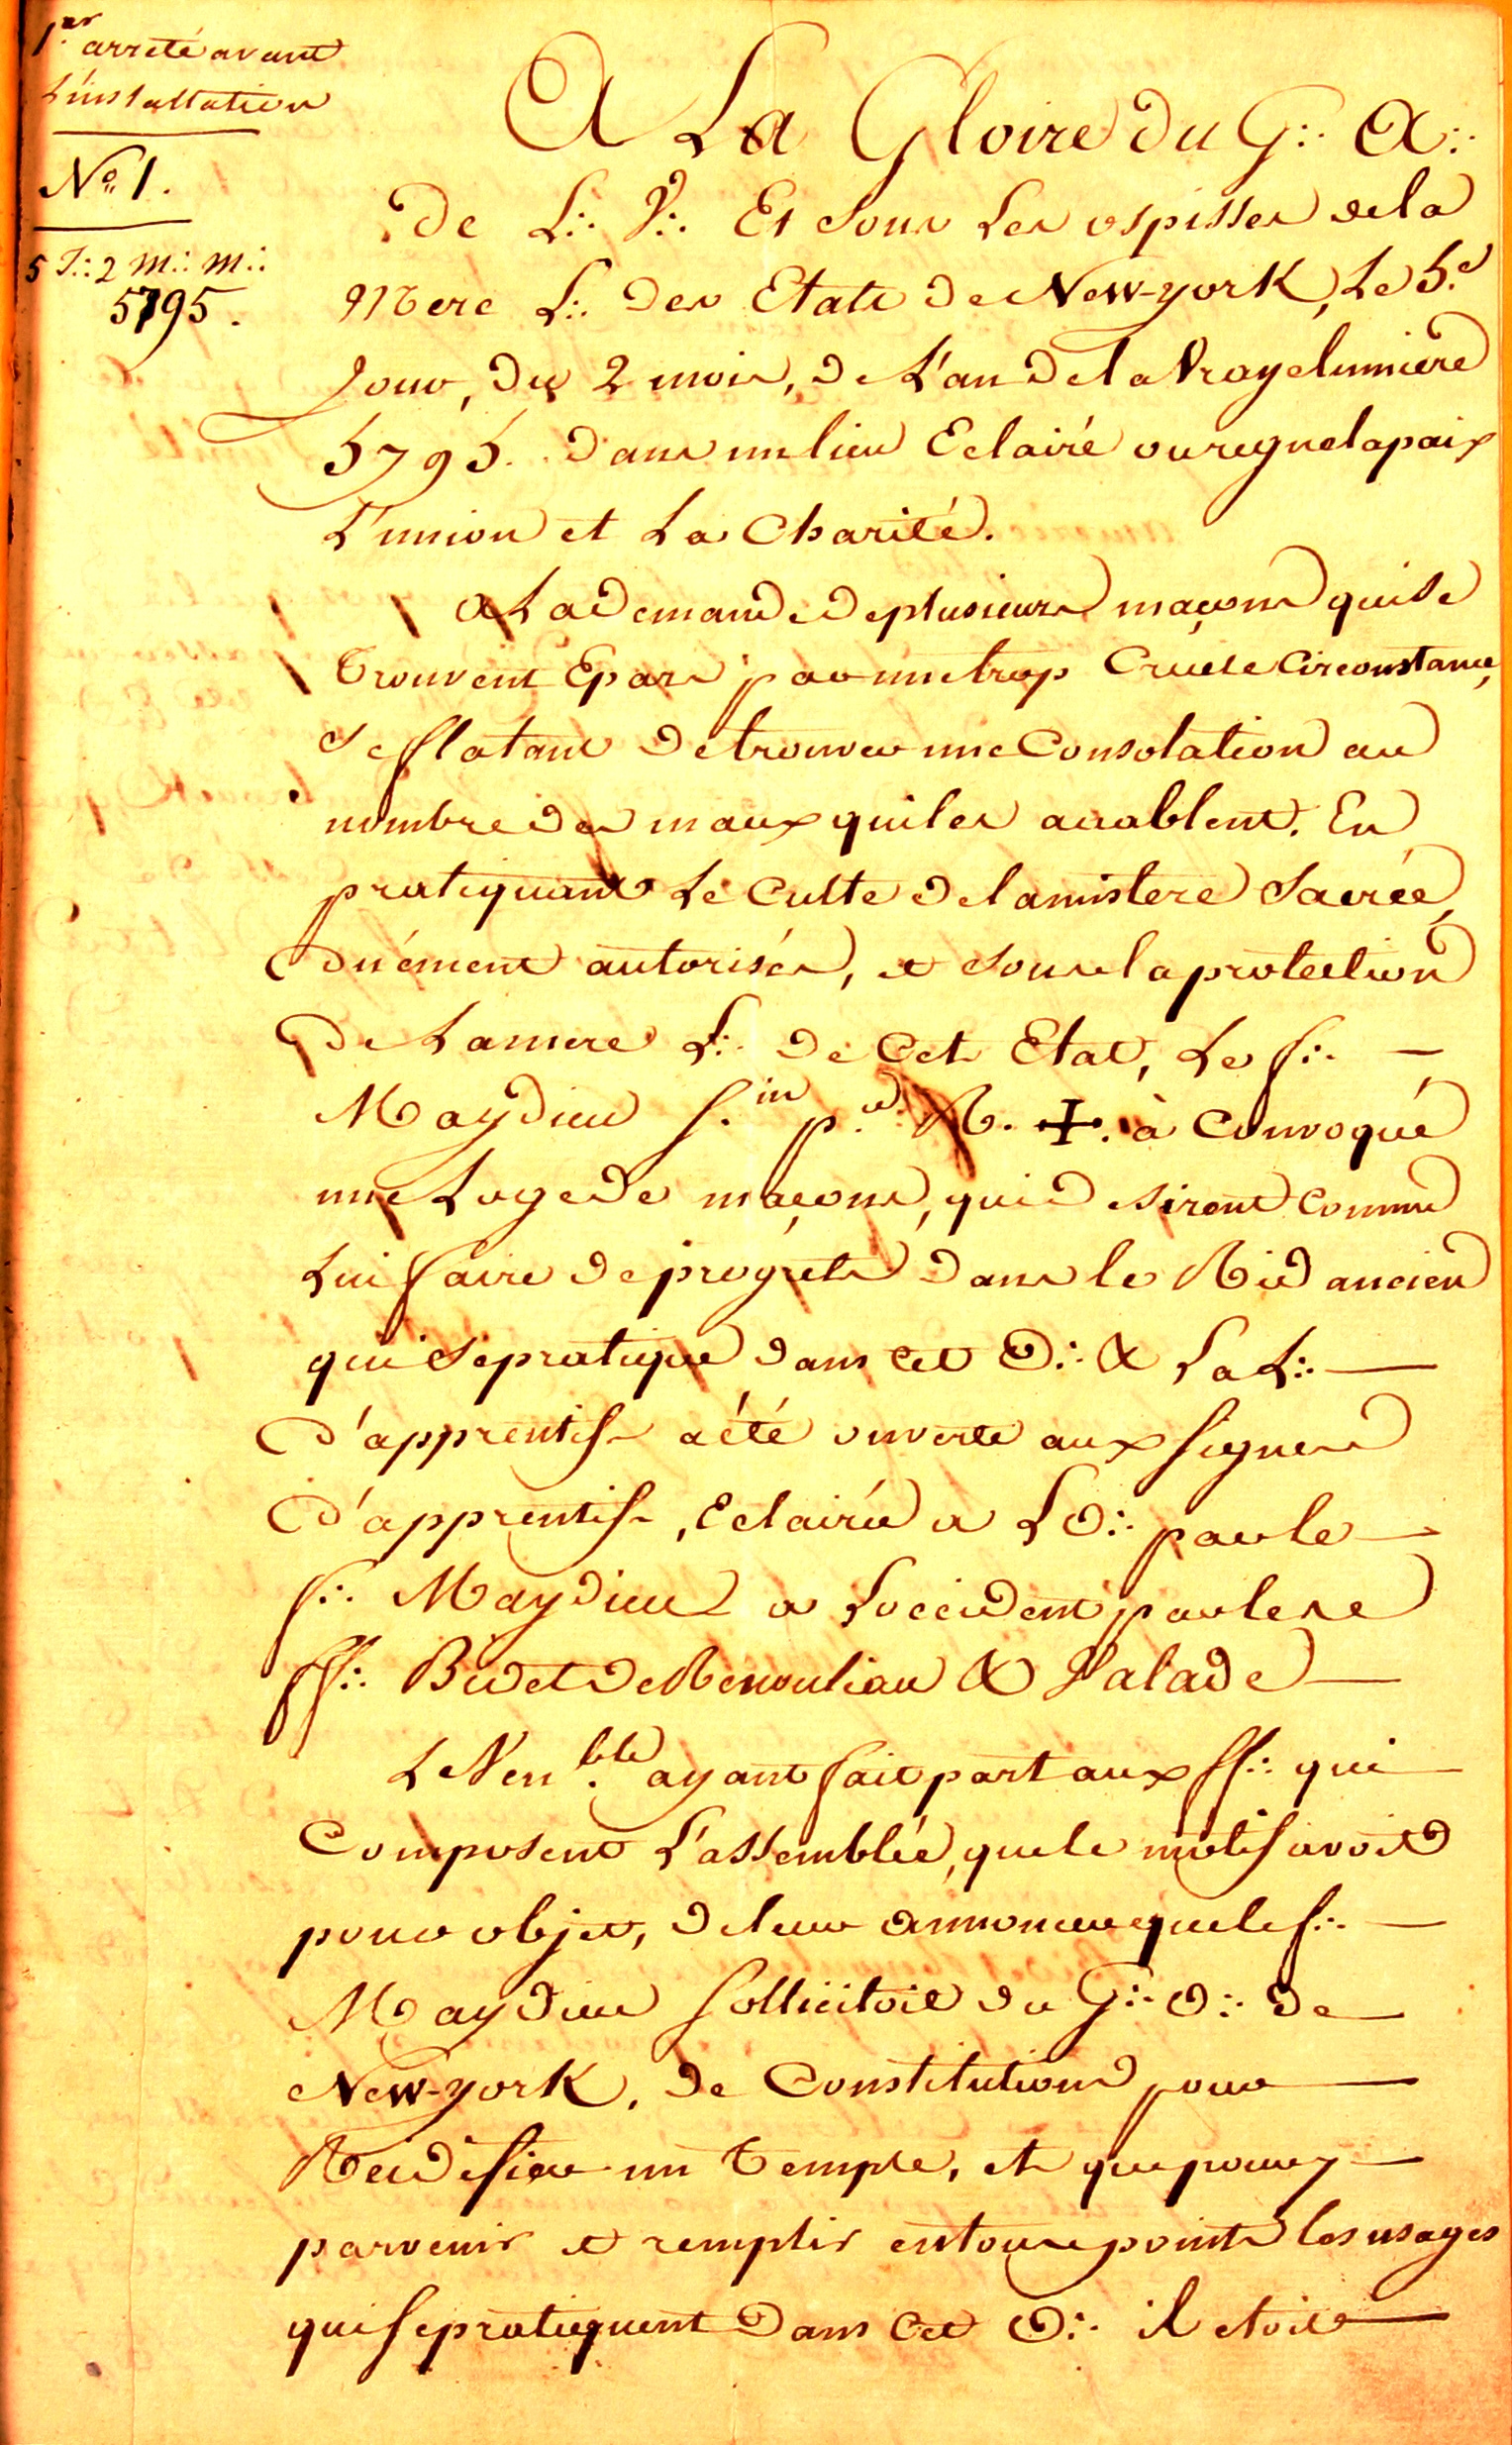 1.er arreté avant
L'installation
No. 1.
5 J∴ 2 M∴ M∴
5795.
A La Gloire du G∴ A∴
de L∴ V∴ Et sous Les ospisses de la
Mere L∴ des Etats de New-york, Le 5.e
Jour, du 2 mois, de L'an de la Vraye lumiere
5795. dans un lieu Eclairé ou regne la paix
L'union et La Charité.
A La demande de plusieurs maçons qui se
trouvent Epars par une trop Cruele Circonstance,
se flatant de trouver une Consolation au
nombre des maux qui les accablent. En
pratiquant Le Culte de la mistere Sacrée,
duëment autorisés, et sous la protection
de La mere L∴ de Cet Etat, Le f∴
Maydieu S.in p.ce R. ✠. à Convoqué
une Loge de maçons, qui desirent comme
Lui faire de progrets dans le Rid ancien
qui se pratique dans cet O∴ & La L∴
d'apprentif a été ouverte aux signes
d'apprentif, Eclairée a L'O∴ par le
f∴ Maydieu a L'occident par les
ff∴ Bidet de Renoulleau & Valade
Le Ven.ble ayant fait part aux ff∴ qui
Composent L'assemblée, que le motif avoit
pour objet, de leur annoncer que le f∴
Maydieu sollicitoit du G∴ O∴ de
New-york, de Constitutions pour
Reidifier un temple, et que pour y
parvenir et remplir en tous points les usages
qui se pratiquent dans cet O∴ il etoit